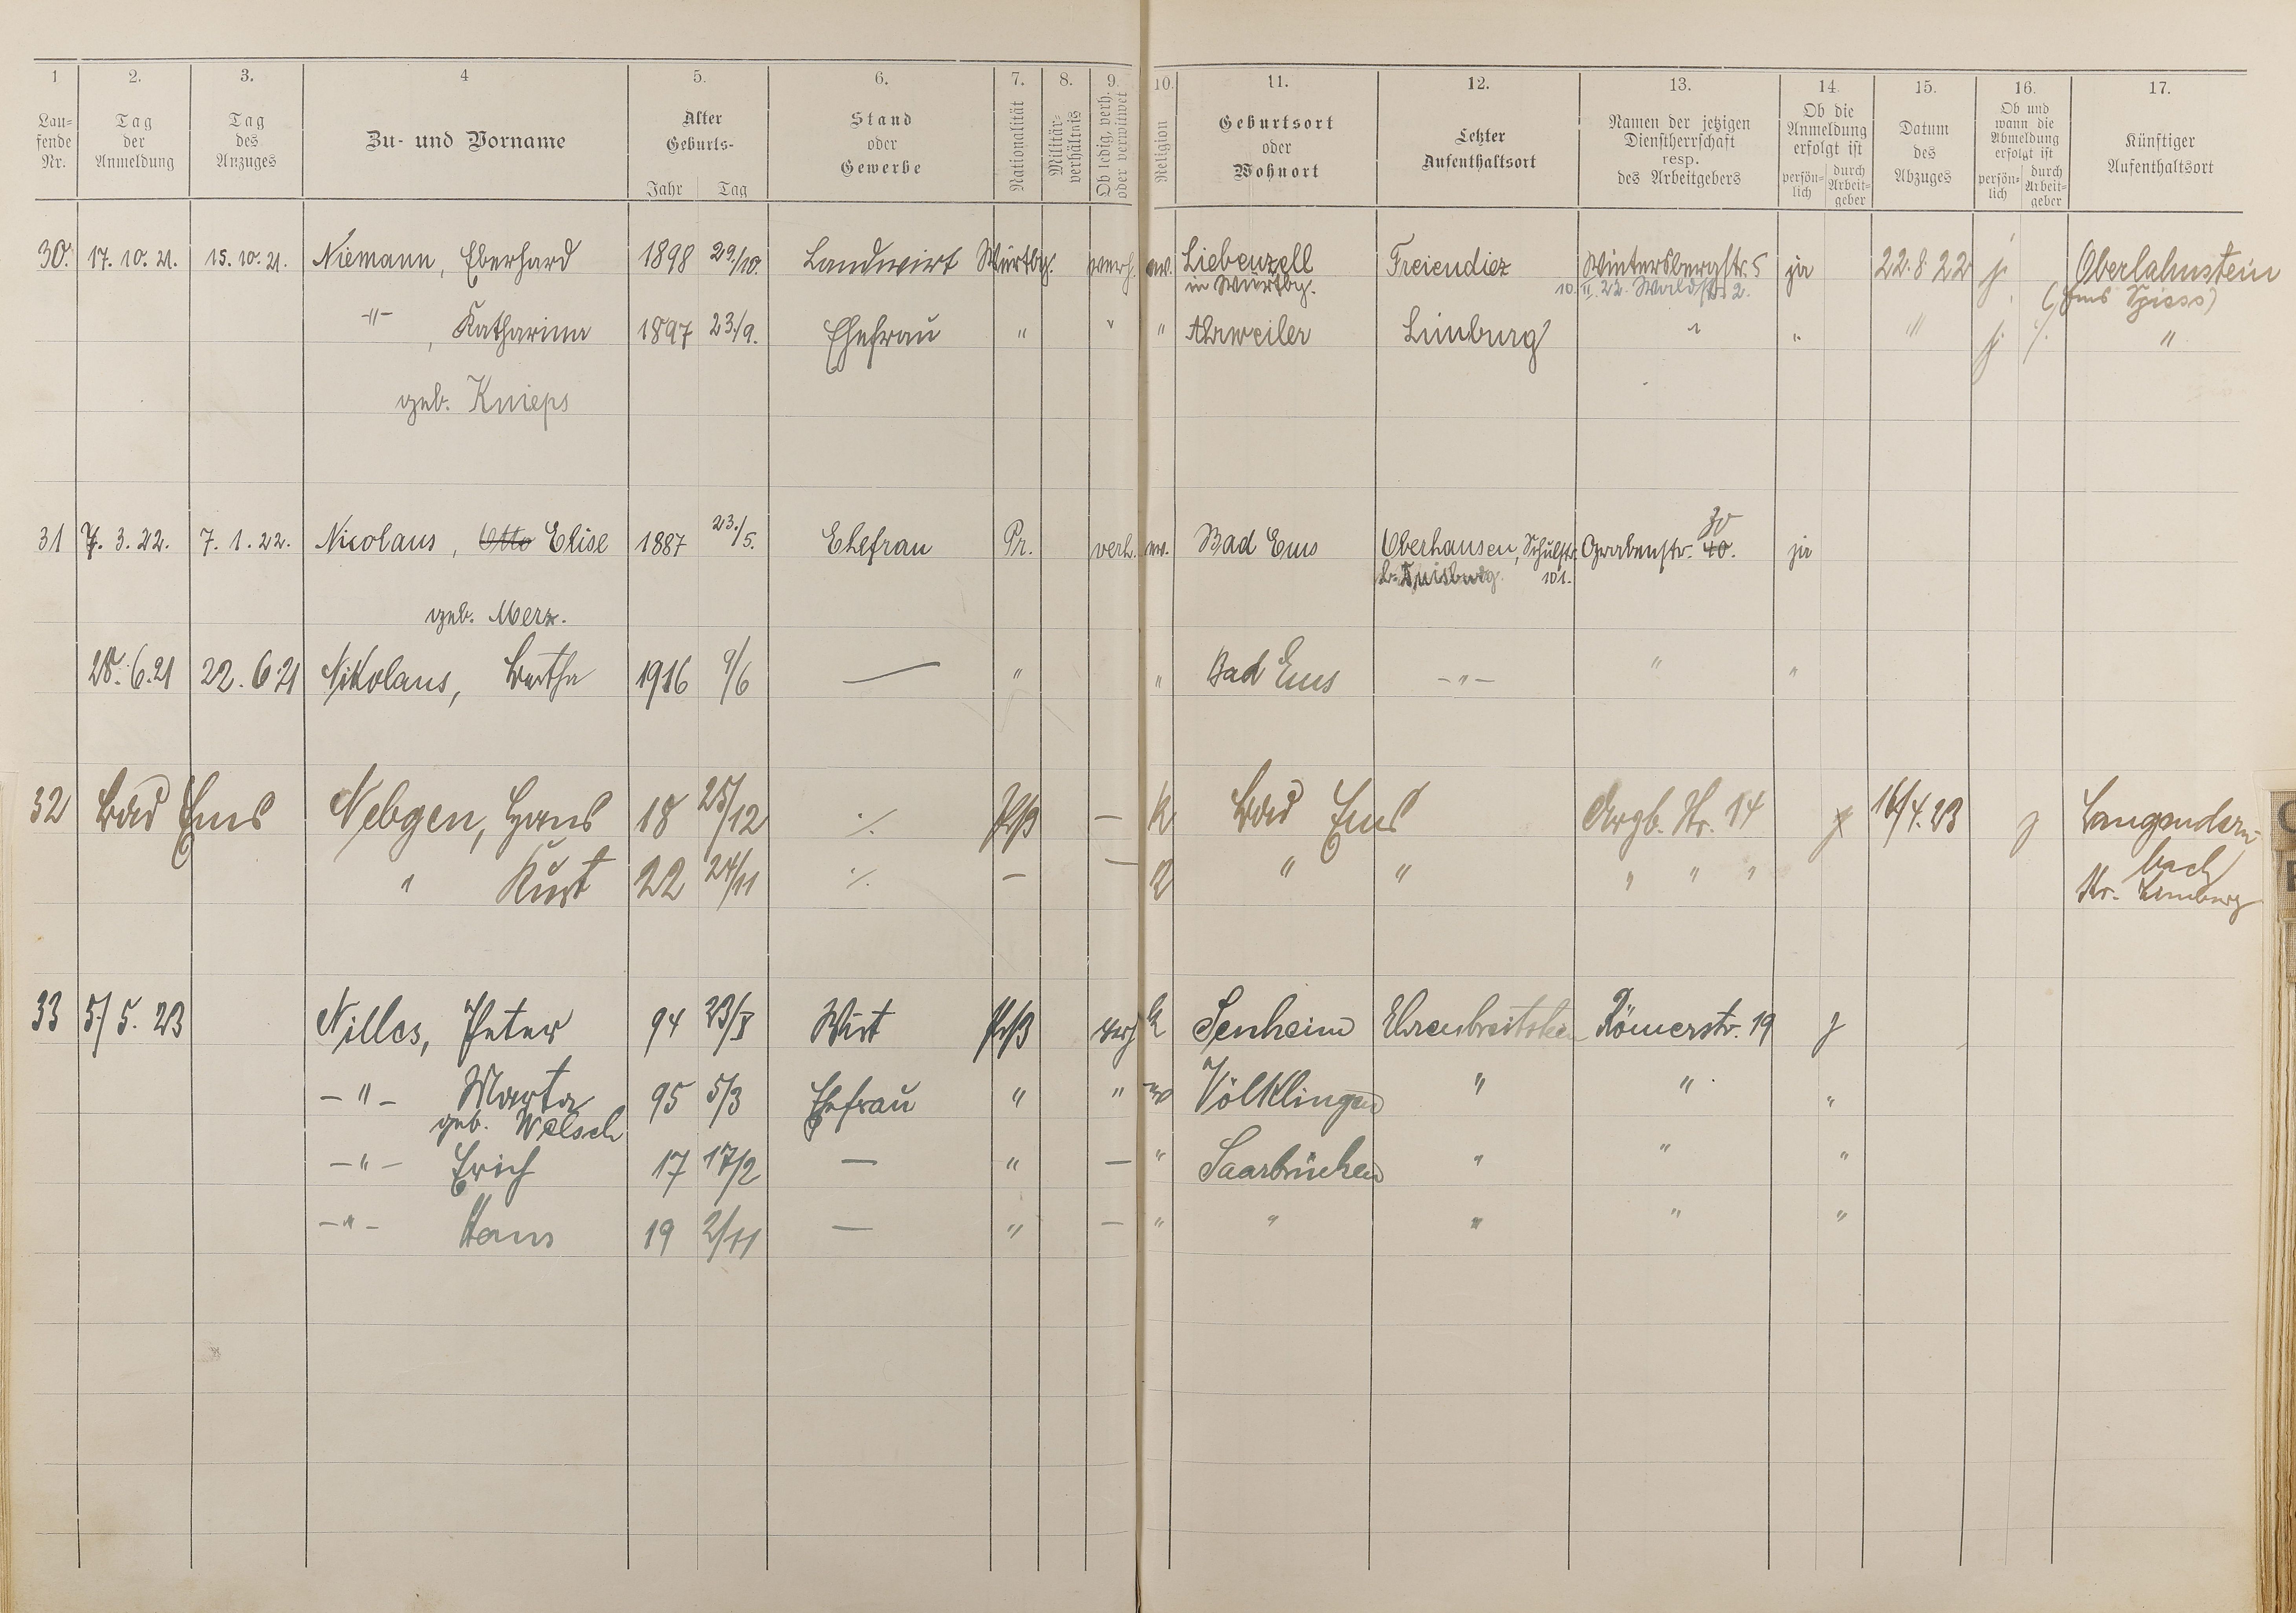 1 2. 3. 4 5. 6. 7. 8. 9. 10. 11. 12. 13. 14. 15. 16. 17.
Lau-
fende
Nr.
Tag
der
Anmeldung
Tag
des
Anzuges
Zu- und Vorname
Alter
Geburts-
Jahr Tag
Stand
oder
Gewerbe
Nationalität
Militär-
verhältnis
Ob ledig, verh.
oder verwitwet
Religion
Geburtsort
oder
Wohnort
Letzter
Aufenthaltsort
Namen der jetzigen
Dienstherrschaft
resp.
des Arbeitgebers
Ob die
Anmeldung
erfolgt ist
persön-
lich
durch
Arbeit-
geber
Datum
des
Abzuges
Ob und
wann die
Abmeldung
erfolgt ist
persön-
lich
durch
Arbeit-
geber
Künftiger
Aufenthaltsort
30. 17. 10. 21. 15. 10. 21. Niemann, Eberhard 1898 29./10. Landwirt Württbg. verh. ev. Liebenzell Freiendiez Wintersbergstr. 5 ja 22. 8 22 j. Oberlahnstein
in Württbg. 10. II. 22. Waldstr. 2. (Ems Spiess)
-"- , Katharina 1897 23./9. Ehefrau " " " Ahrweiler Limburg " " " j. "
geb. Knieps
31 7. 3. 22. 7. 1. 22. Nicolaus, Otto Elise 1887 23./5. Ehefrau Pr. verh. ev. Bad Ems Oberhausen, Schulstr. Grabenstr. 40. 30 ja
b. Duisburg. 101.
geb. Merz.
28. 6. 21 22. 6 21 Nikolaus, Bertha 1916 9/6 — " " Bad Ems -"- " "
32 Bad Ems Nebgen, Hans 18 25/12 ./. Prß — K Bad Ems Arzb. Str. 14 j 16/4. 23 j Langendern-
bach
" Kurt 22 24/11 ./. — — K " " " " " Kr. Limburg
33 5/5. 23 Nilles, Peter 94 23/X Wirt Prß verh K Senheim Ehrenbreitstein Römerstr. 19 j
-"- Marta 95 5/3 Ehefrau " " ev Völklingen " " "
geb. Welsch
-"- Erich 17 17/2 — " — " Saarbrücken " " "
-"- Hans 19 2/11 — " — " " " " "